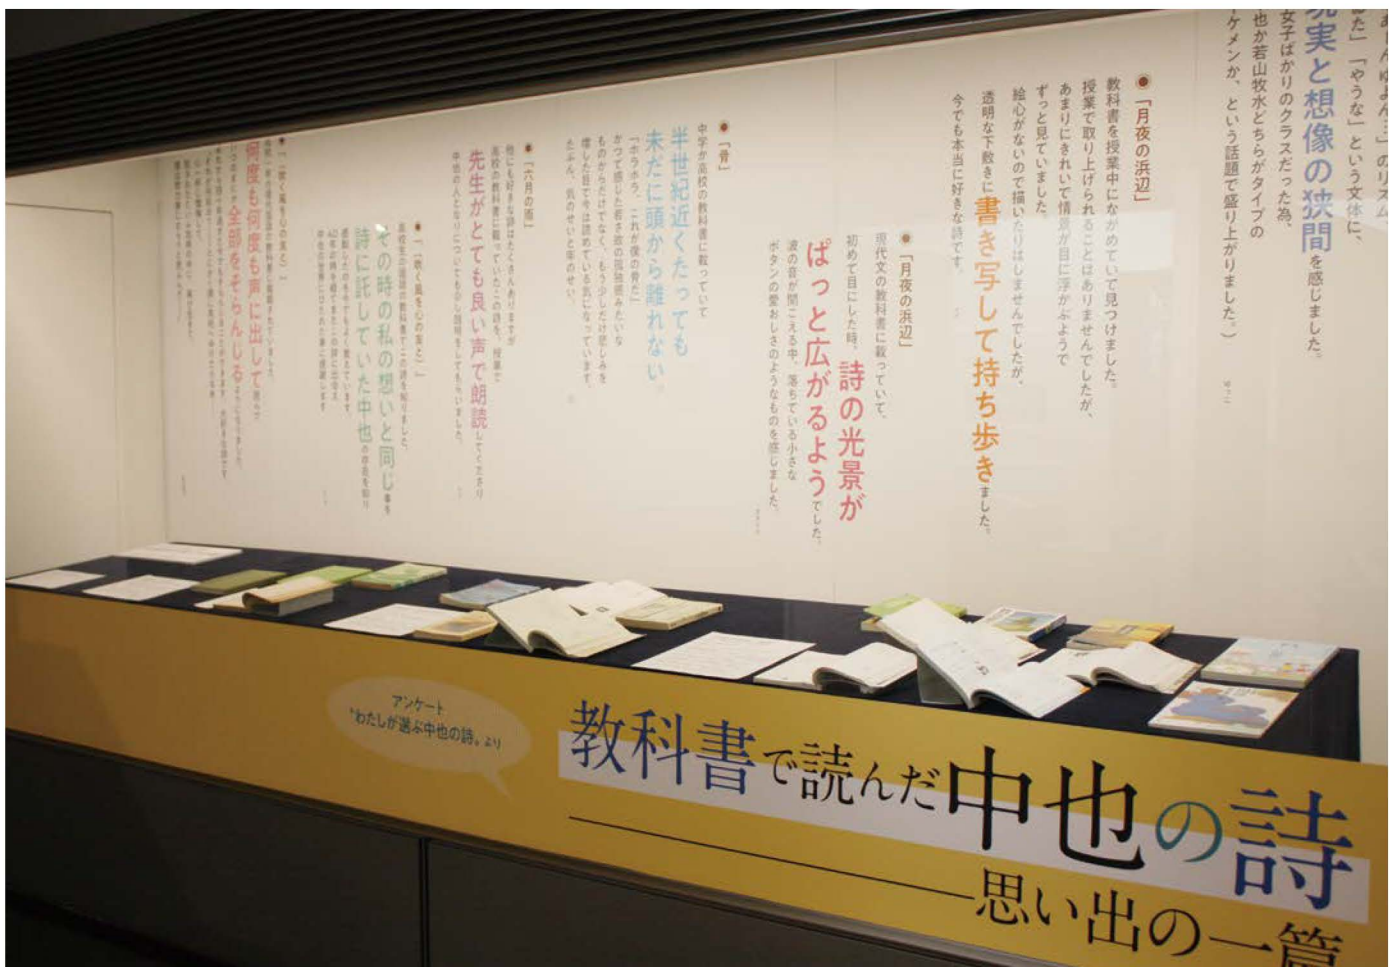 現実と想像の狭間を感じました。
女子ばかりのクラスだった為、
也か若山牧水どちらがタイプの
ケメンか、という話題で盛り上がりました。）
ゆうこ
●「月夜の浜辺」
教科書を授業中にながめていて見つけました。
授業で取り上げられることはありませんでしたが、
あまりにきれいで情景が目に浮かぶようで
ずっと見ていました。
絵心がないので描いたりはしませんでしたが、
透明な下敷きに書き写して持ち歩きました。
今でも本当に好きな詩です。
●「月夜の浜辺」
現代文の教科書に載っていて、
初めて目にした時、詩の光景が
ぱっと広がるようでした。
波の音が聞こえる中、落ちている小さな
ボタンの愛おしさのようなものを感じました。
●「骨」
中学か高校の教科書に載っていて
半世紀近くたっても
未だに頭から離れない。
「ホラホラ、これが僕の骨だ」
かつて感じた若さ故の孤独感みたいな
ものからだけでなく、もう少しだけ悲しみを
増した目で今は読めている気になっています。
たぶん、気のせいと年のせい。
●「六月の雨」
他にも好きな詩はたくさんありますが
高校の教科書に載っていたこの詩を、授業で
先生がとても良い声で朗読してくださり
中也の人となりについても少し説明をしてもらいました。
●「（吹く風を心の友と）」
高校生の国語の教科書でこの詩を知りました。
その時の私の想いと同じ事を
詩に託していた中也の存在を知り
感動したのを今でもよく覚えています。
●「（吹く風を心の友と）」
何度も何度も声に出して
全部をそらんじるようになりました。
アンケート
“わたしが選ぶ中也の詩”より
教科書で読んだ中也の詩
――思い出の一篇